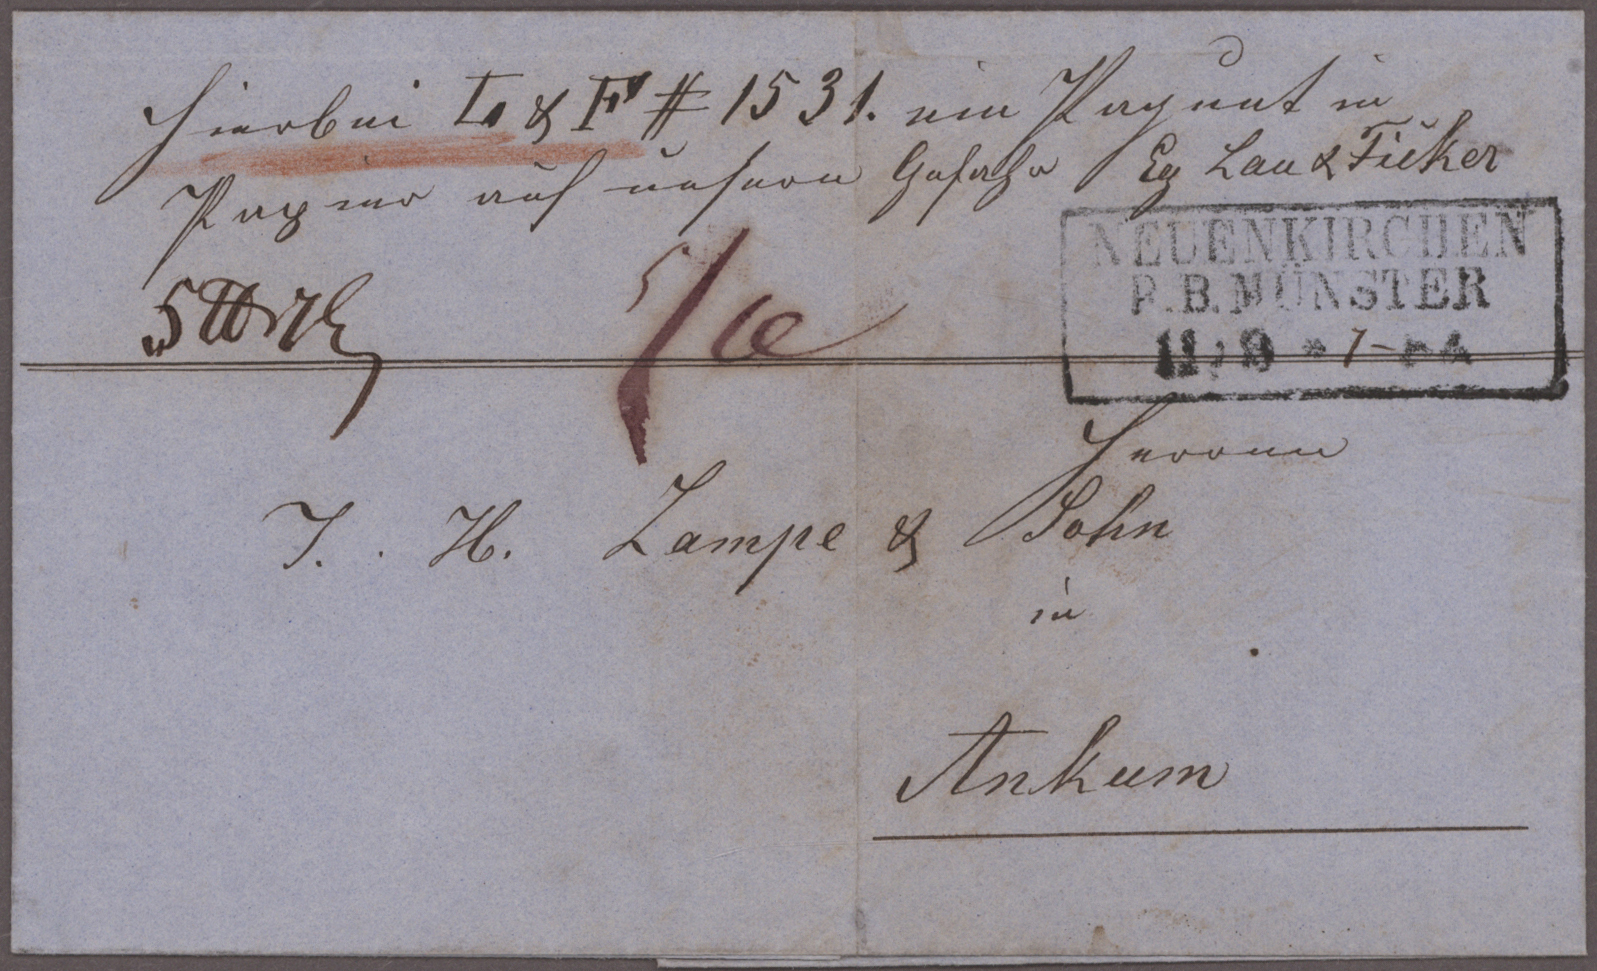 Hierbei L & F # 1531. ein Paquet in
Papier auf unsern Gefahr Eg Lau & Ficker
NEUENKIRCHEN
R.B. MÜNSTER
11/9 * 7-
5 ℔
5/
Herren
J. H. Lampe & Sohn
in
Ankum